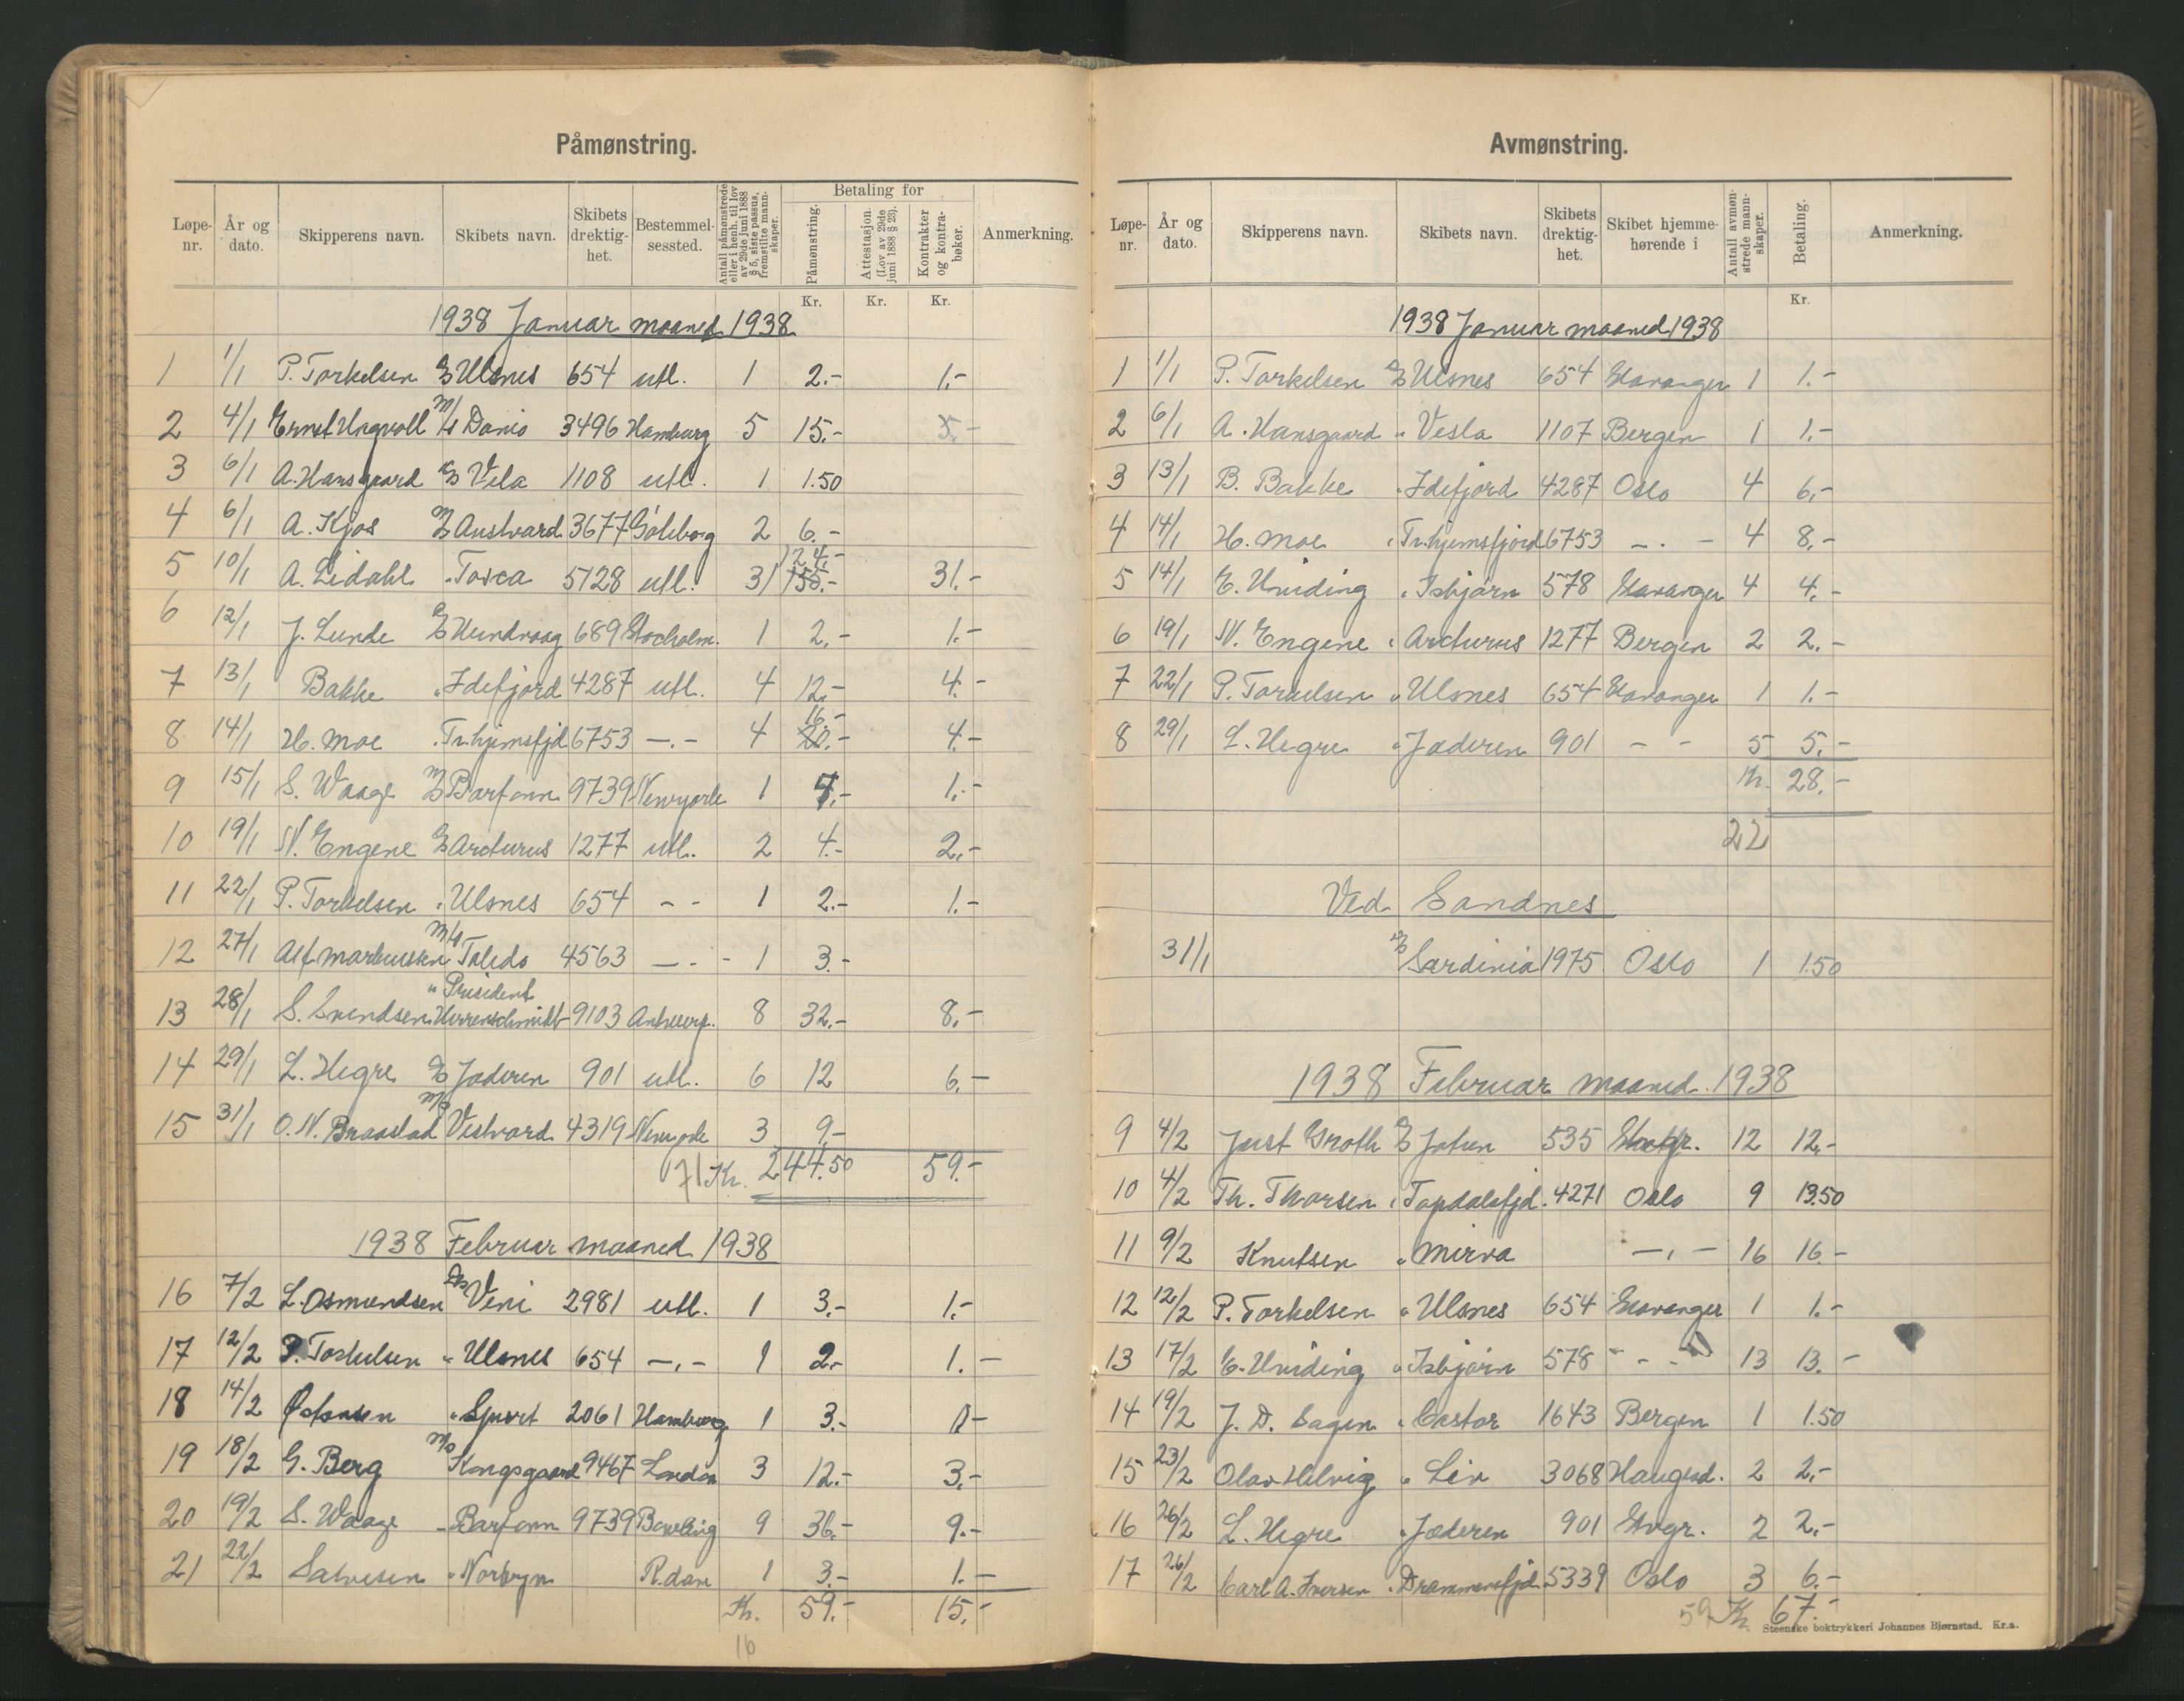 Påmønstring.
Løpe-nr. År og dato. Skipperens navn. Skibets navn. Skibets drektig-het. Bestemmel-sessted. Antall påmønstrede eller i henh. til lov av 29de juni 1888 § 5, siste passus, fremstilte mann-skaper. Betaling for Påmønstring. Attestasjon. (Lov av 29de juni 1888 § 23). Kontrakter og kontra-bøker. Anmerkning.
Kr. Kr. Kr.
1938 Januar maaned 1938
1 1/1 P. Torkelsen Ulsnes 654 utl. 1 2.- 1.-
2 4/1 M/s Danio 3496 Hamburg 5 15.- 5.-
3 6/1 A. Hansgaard Vela 1108 utl. 1 1.50
4 6/1 A. Kjos Austvard 3677 Göteborg 2 6.-
5 10/1 A. Lidahl " Tosca 5128 utl. 31 124.- 31.-
6 12/1 J. Lunde Hundvaag 689 Stocholm. 1 2.- 1.-
7 13/1 Bakke " Idefjord 4287 utl. 4 12.- 4.-
8 14/1 H. Moe " Tr.hjemsfjd 6753 -.- 4 16.- 20.- 4.-
9 15/1 S. Waage Barfonn 9739 Newyork 1 4.- 1.-
10 19/1 N. Engene Arcturus 1277 utl. 2 4.- 2.-
11 22/1 P. Torkelsen " Ulsnes 654 - - 1 2.- 1.-
12 27/1 Alf Markussen M/s Toledo 4563 - - - 1 3.-
13 28/1 S. Svendsen " President Herrenschmidt 9103 Antwerp. 8 32.- 8.-
14 29/1 L. Hegre Jæderen 901 utl. 6 12 6.-
15 31/1 O. N. Braastad M/s Vestvard 4319 Newyork 3 9.-
71 Kr. 244.50 59.-
1938 Februar maaned 1938
16 7/2 L. Osmundsen Veni 2981 utl. 1 3.- 1.-
17 12/2 P. Torkelsen " Ulsnes 654 -.- 1 2.- 1.-
18 14/2 " Spurt 2061 Hamburg 1 3.- 1-
19 18/2 G. Berg M/s Kongsgaard 9467 London 3 12.- 3.-
20 19/2 S. Waage " Barfonn 9739 Bowling 9 36.- 9.-
21 22/2 Salvesen " Norbryn R.dam 1 3.- 1.-
Kr. 59.- 15.-
16
Avmønstring.
Løpe-nr. År og dato. Skipperens navn. Skibets navn. Skibets drektig-het. Skibet hjemme-hørende i Antall avmøn-strede mann-skaper. Betaling. Anmerkning.
Kr.
1938 Januar maaned 1938
1 1/1 P. Torkelsen Ulsnes 654 Stavanger 1 1.-
2 6/1 A. Hansgaard " Vesla 1107 Bergen 1 1.-
3 13/1 B. Bakke " Idefjord 4287 Oslo 4 6.-
4 14/1 H. Moe " Tr.hjemsfjord 6753 - . - 4 8.-
5 14/1 " Isbjørn 578 Stavanger 4 4.-
6 19/1 N. Engene " Arcturus 1277 Bergen 2 2.-
7 22/1 P. Torkelsen " Ulsnes 654 Stavanger 1 1.-
8 29/1 L. Hegre " Jæderen 901 - - 5 5.-
Kr. 28.-
22
Ved Sandnes
31/1 Sardinia 1975 Oslo 1 1.50
1938 Februar maaned 1938
9 4/2 Just Groth Jotun 535 12 12.-
10 4/2 Th. Thorsen " Topdalsfjd. 4271 Oslo 9 13.50
11 9/2 Knutsen " Mirva -.- 16 16.-
12 12/2 P. Torkelsen " Ulsnes 654 Stavanger 1 1.-
13 17/2 " Isbjørn 578 " - - 13 13.-
14 19/2 J. D. Sagen " Castor 1643 Bergen 1 1.50
15 23/2 Olav Helvig " Liv 3068 Haugesd. 2 2.-
16 26/2 L. Hegre " Jæderen 901 Stvgr. 2 2.-
17 26/2 Carl A. Iversen " Drammensfjd. 5339 Oslo 3 6.-
59 Kr. 67.-
Steenske boktrykkeri Johannes Bjørnstad. Kr.a.